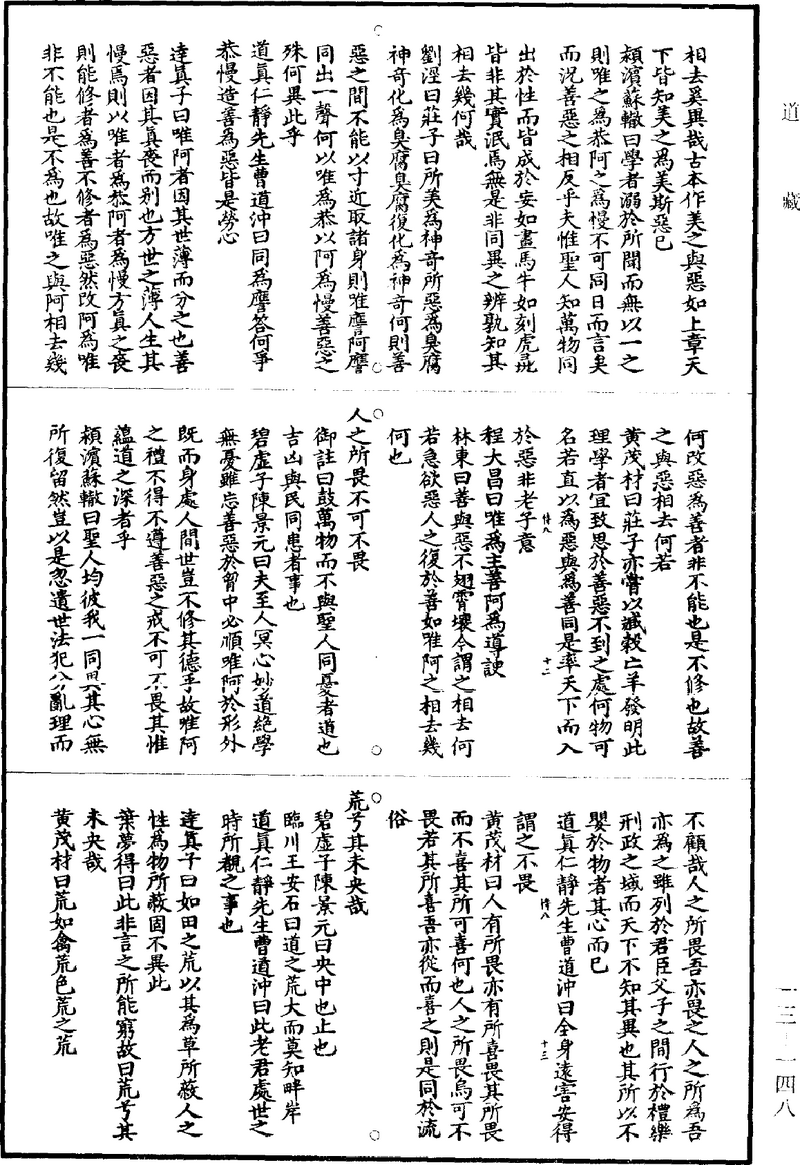 道藏
相去奚異哉古本作美之與惡如上章天
下皆知美之為美斯惡已
潁濱蘇轍曰學者溺於所聞而無以一之
則唯之為恭阿之為慢不可同日而言矣
而況善惡之相反乎夫惟聖人知萬物同
出於性而皆成於妄如畫馬牛如刻虎彘
皆非其實泯焉無是非同異之辨孰知其
相去幾何哉
劉涇曰莊子曰所美為神奇所惡為臭腐
神奇化為臭腐臭腐復化為神奇何則善
惡之間不能以寸近取諸身則唯譍阿譍
同出一聲何以唯為恭以阿為慢善惡之
殊何異此乎
道真仁靜先生曹道沖曰同為譍答何爭
恭慢造善為惡皆是勞心
達真子曰唯阿者因其世薄而分之也善
惡者因其真喪而別也方世之薄人生其
慢焉則以唯者為恭阿者為慢方真之喪
則能修者為善不修者為惡然改阿為唯
非不能也是不為也故唯之與阿相去幾
何改惡為善者非不能也是不修也故善
之與惡相去何若
黃茂材曰莊子亦嘗以臧穀亡羊發明此
理學者宜致思於善惡不到之處何物可
名若直以為惡與為善同是率天下而入
於惡非老子意
程大昌曰唯為主善阿為導諛
林東曰善與惡不翅霄壤今謂之相去何
若急欲惡人之復於善如唯阿之相去幾
何也
人之所畏不可不畏
御註曰鼓萬物而不與聖人同憂者道也
吉凶與民同患者事也
碧虛子陳景元曰夫至人冥心妙道絕學
無憂雖忘善惡於胷中必順唯阿於形外
既而身處人間世豈不修其德乎故唯阿
之禮不得不遵善惡之戒不可不畏其惟
蘊道之深者乎
潁濱蘇轍曰聖人均彼我一同異其心無
所復留然豈以是忽遺世法犯分亂理而
不顧哉人之所畏吾亦畏之人之所為吾
亦為之雖列於君臣父子之間行於禮樂
刑政之域而天下不知其異也其所以不
嬰於物者其心而已
道真仁靜先生曹道沖曰全身遠害安得
謂之不畏
黃茂材曰人有所畏亦有所喜畏其所畏
而不喜其所可喜何也人之所畏烏可不
畏若其所喜吾亦從而喜之則是同於流
俗
荒兮其未央哉
碧虛子陳景元曰央中也止也
臨川王安石曰道之荒大而莫知畔岸
道真仁靜先生曹道沖曰此老君處世之
時所觀之事也
達真子曰如田之荒以其為草所蔽人之
性為物所蔽固不異此
葉夢得曰此非言之所能窮故曰荒兮其
未央哉
黃茂材曰荒如禽荒色荒之荒
十二
十三
一三—一四八